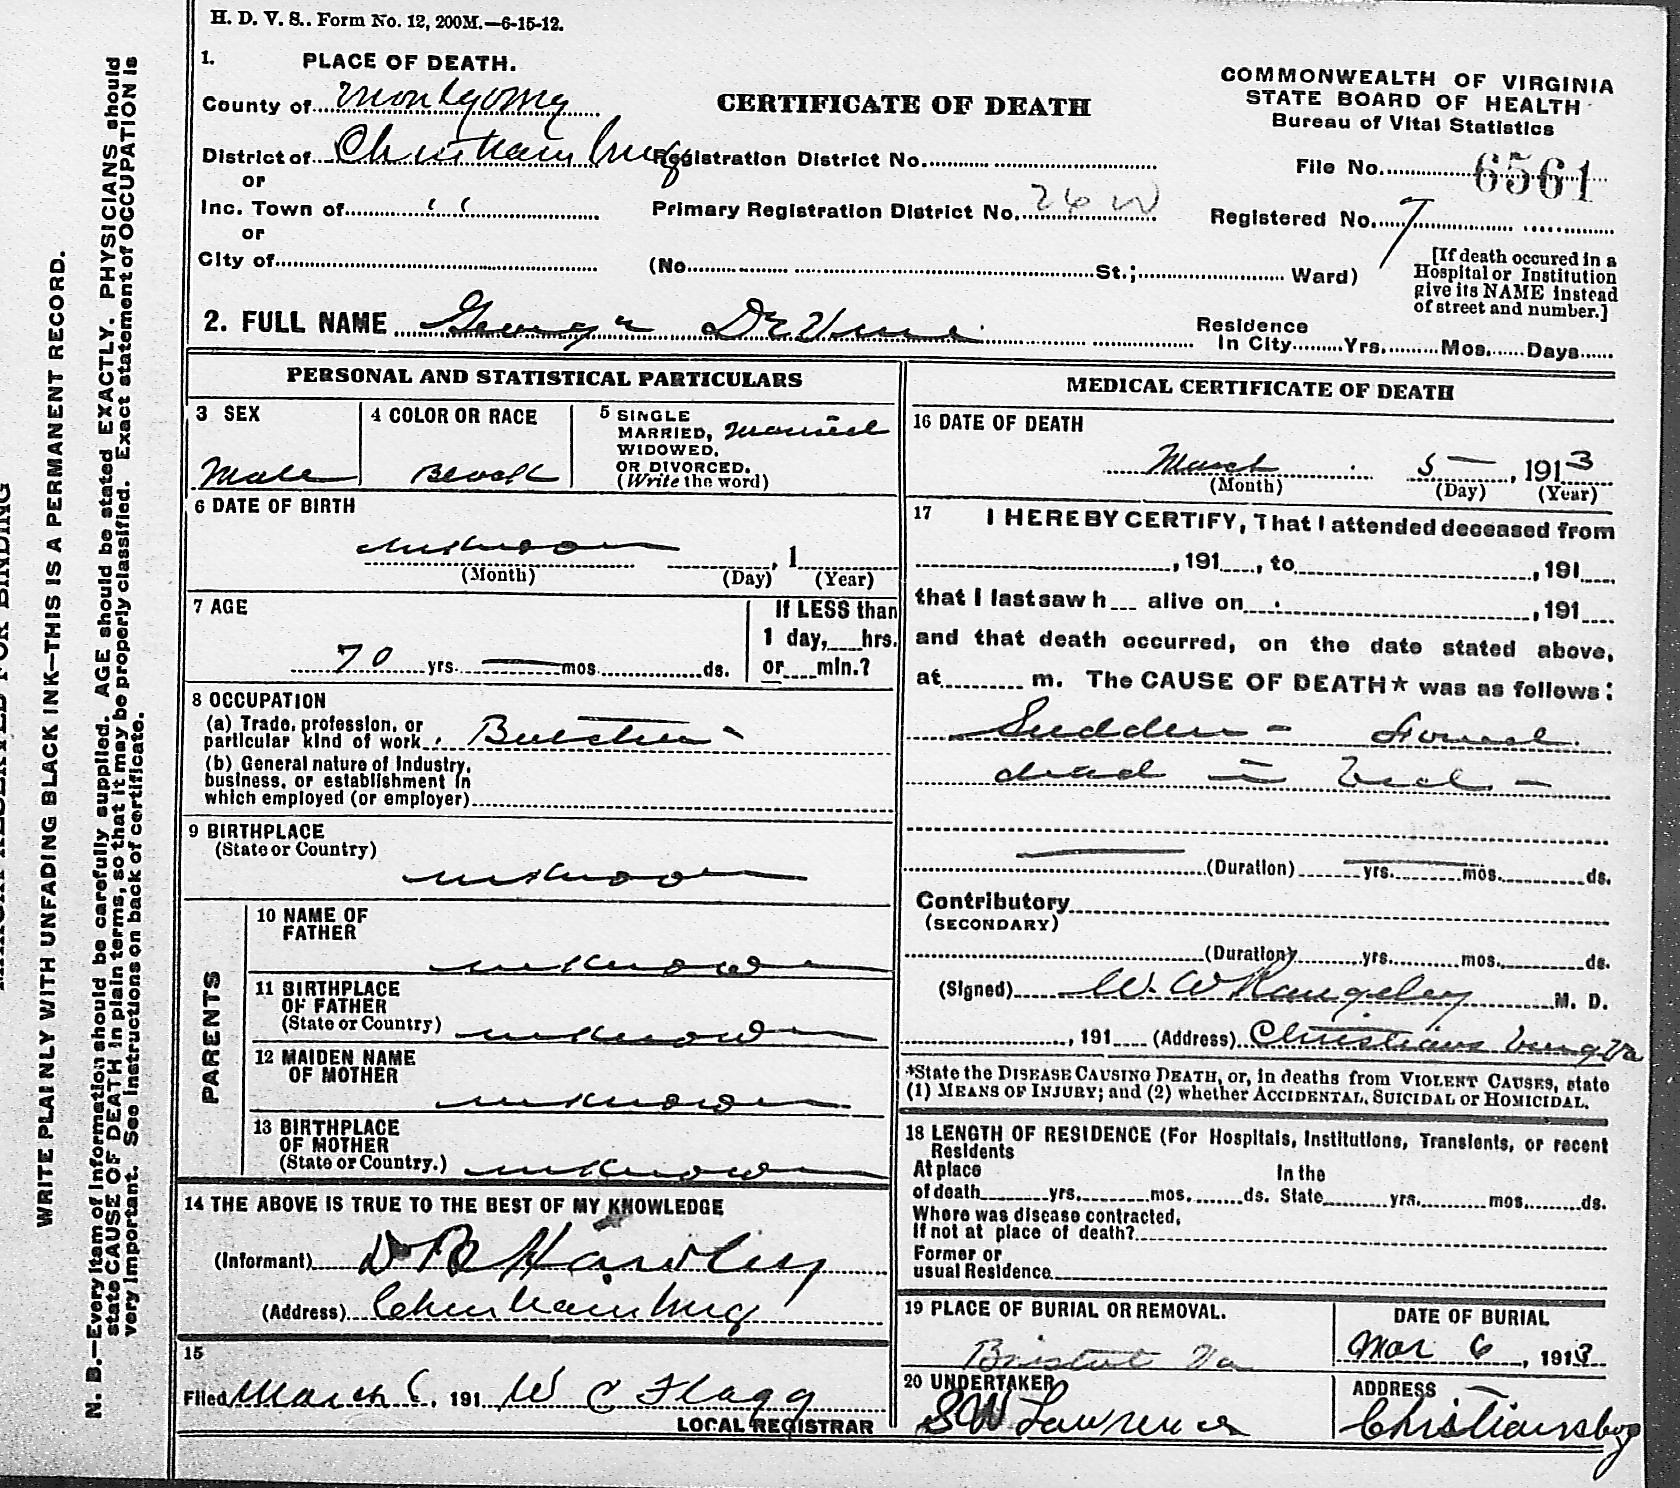 H. D. V. S.. Form No. 12, 200M.—6-15-12.
1. PLACE OF DEATH.
County of Montgomy
District of Christiansburg
or
Inc. Town of " "
or
City of
CERTIFICATE OF DEATH
Registration District No.
Primary Registration District No. 26 W
(No. St.; Ward)
COMMONWEALTH OF VIRGINIA
STATE BOARD OF HEALTH
Bureau of Vital Statistics
File No. 6561
Registered No. 7
[If death occured in a
Hospital or Institution
give its NAME instead
of street and number.]
2. FULL NAME George
Residence
In City Yrs. Mos. Days
PERSONAL AND STATISTICAL PARTICULARS
3 SEX
Male
4 COLOR OR RACE
Black
5 SINGLE
MARRIED, Married
WIDOWED,
OR DIVORCED.
(Write the word)
6 DATE OF BIRTH
unknown , 1
(Month) (Day) (Year)
7 AGE
70 yrs. — mos. ds.
If LESS than
1 day, hrs.
or min.?
8 OCCUPATION
(a) Trade, profession, or
particular kind of work
(b) General nature of Industry,
business, or establishment in
which employed (or employer)
9 BIRTHPLACE
(State or Country)
unknown
PARENTS
10 NAME OF
FATHER
unknown
11 BIRTHPLACE
OF FATHER
(State or Country) unknown
12 MAIDEN NAME
OF MOTHER
unknown
13 BIRTHPLACE
OF MOTHER
(State or Country.) unknown
14 THE ABOVE IS TRUE TO THE BEST OF MY KNOWLEDGE
(Informant) D B Hawley
(Address) Christiansburg
15
Filed March 6, 191 W C Flagg
LOCAL REGISTRAR
MEDICAL CERTIFICATE OF DEATH
16 DATE OF DEATH
March 5 — , 1913
(Month) (Day) (Year)
17 I HEREBY CERTIFY, That I attended deceased from
, 191 , to , 191
that I last saw h alive on , 191
and that death occurred, on the date stated above,
at m. The CAUSE OF DEATH* was as follows:
Sudden - Found
dead in bed -
(Duration) yrs. mos. ds.
Contributory
(SECONDARY)
(Duration) yrs. mos. ds.
(Signed) W. W Rangeley M. D.
, 191 (Address) Christiansburg Va
*State the DISEASE CAUSING DEATH, or, in deaths from VIOLENT CAUSES, state
(1) MEANS OF INJURY; and (2) whether ACCIDENTAL, SUICIDAL or HOMICIDAL.
18 LENGTH OF RESIDENCE (For Hospitals, Institutions, Transients, or recent
Residents
At place In the
of death yrs. mos. ds. State yrs. mos. ds.
Where was disease contracted,
If not at place of death?
Former or
usual Residence
19 PLACE OF BURIAL OR REMOVAL.
Bristol Va
DATE OF BURIAL
Mar 6 , 1913
20 UNDERTAKER
S W Lawrence
ADDRESS
Christiansbug
WRITE PLAINLY WITH UNFADING BLACK INK—THIS IS A PERMANENT RECORD.
N. B.—Every item of information should be carefully supplied. AGE should be stated EXACTLY. PHYSICIANS should
state CAUSE OF DEATH in plain terms, so that it may be properly classified. Exact statement of OCCUPATION is
very important. See instructions on back of certificate.